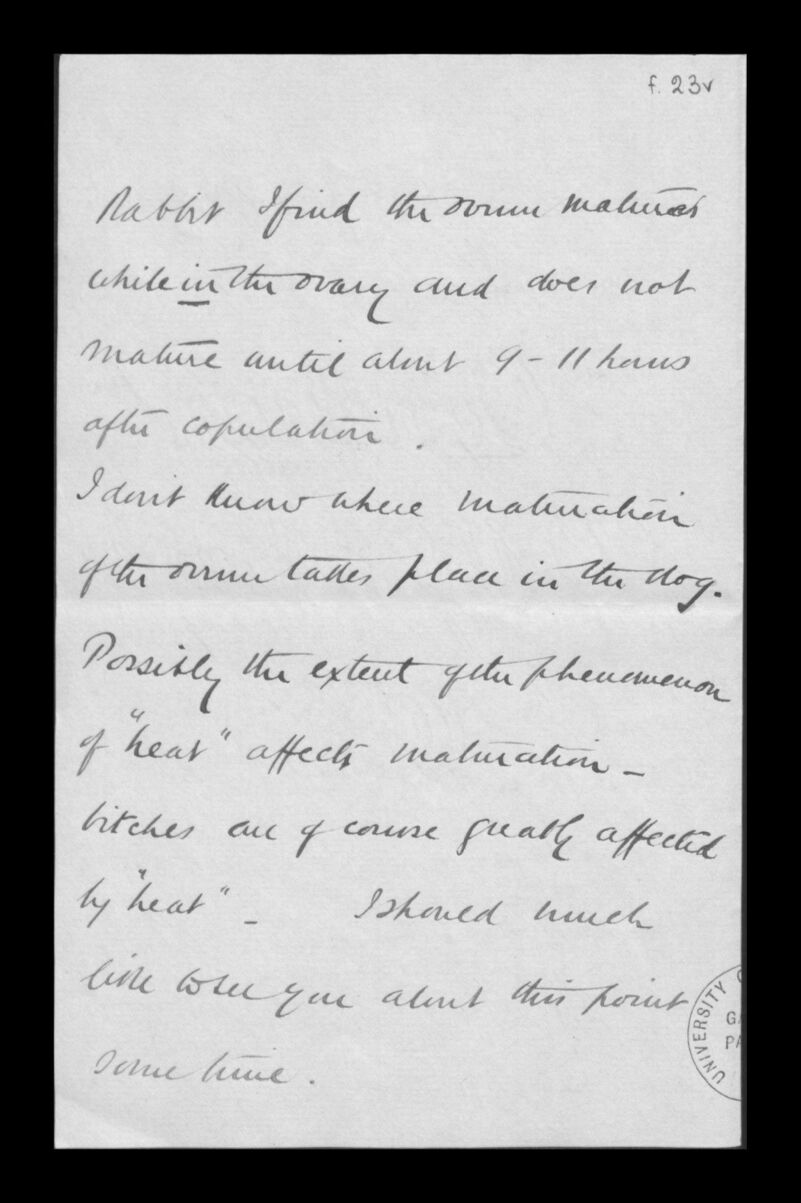 f. 23v
Rabbit I find the ovum matures
while in the ovary and does not
mature until about 9 - 11 hours
after copulation.
I don't know where maturation
of the ovum takes place in the dog.
Possibly the extent of the phenomenon
of "heat" affects maturation -
bitches are of course greatly affected
by "heat" - I should much
like to see you about this point
some time.
UNIVERSITY
GA
PA